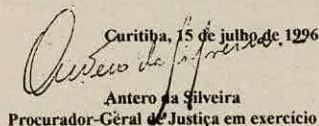 Curitiba, 15 de julho de 1996
Antero da Silveira
Antero da Silveira
Procurador-Geral de Justiça em exercício